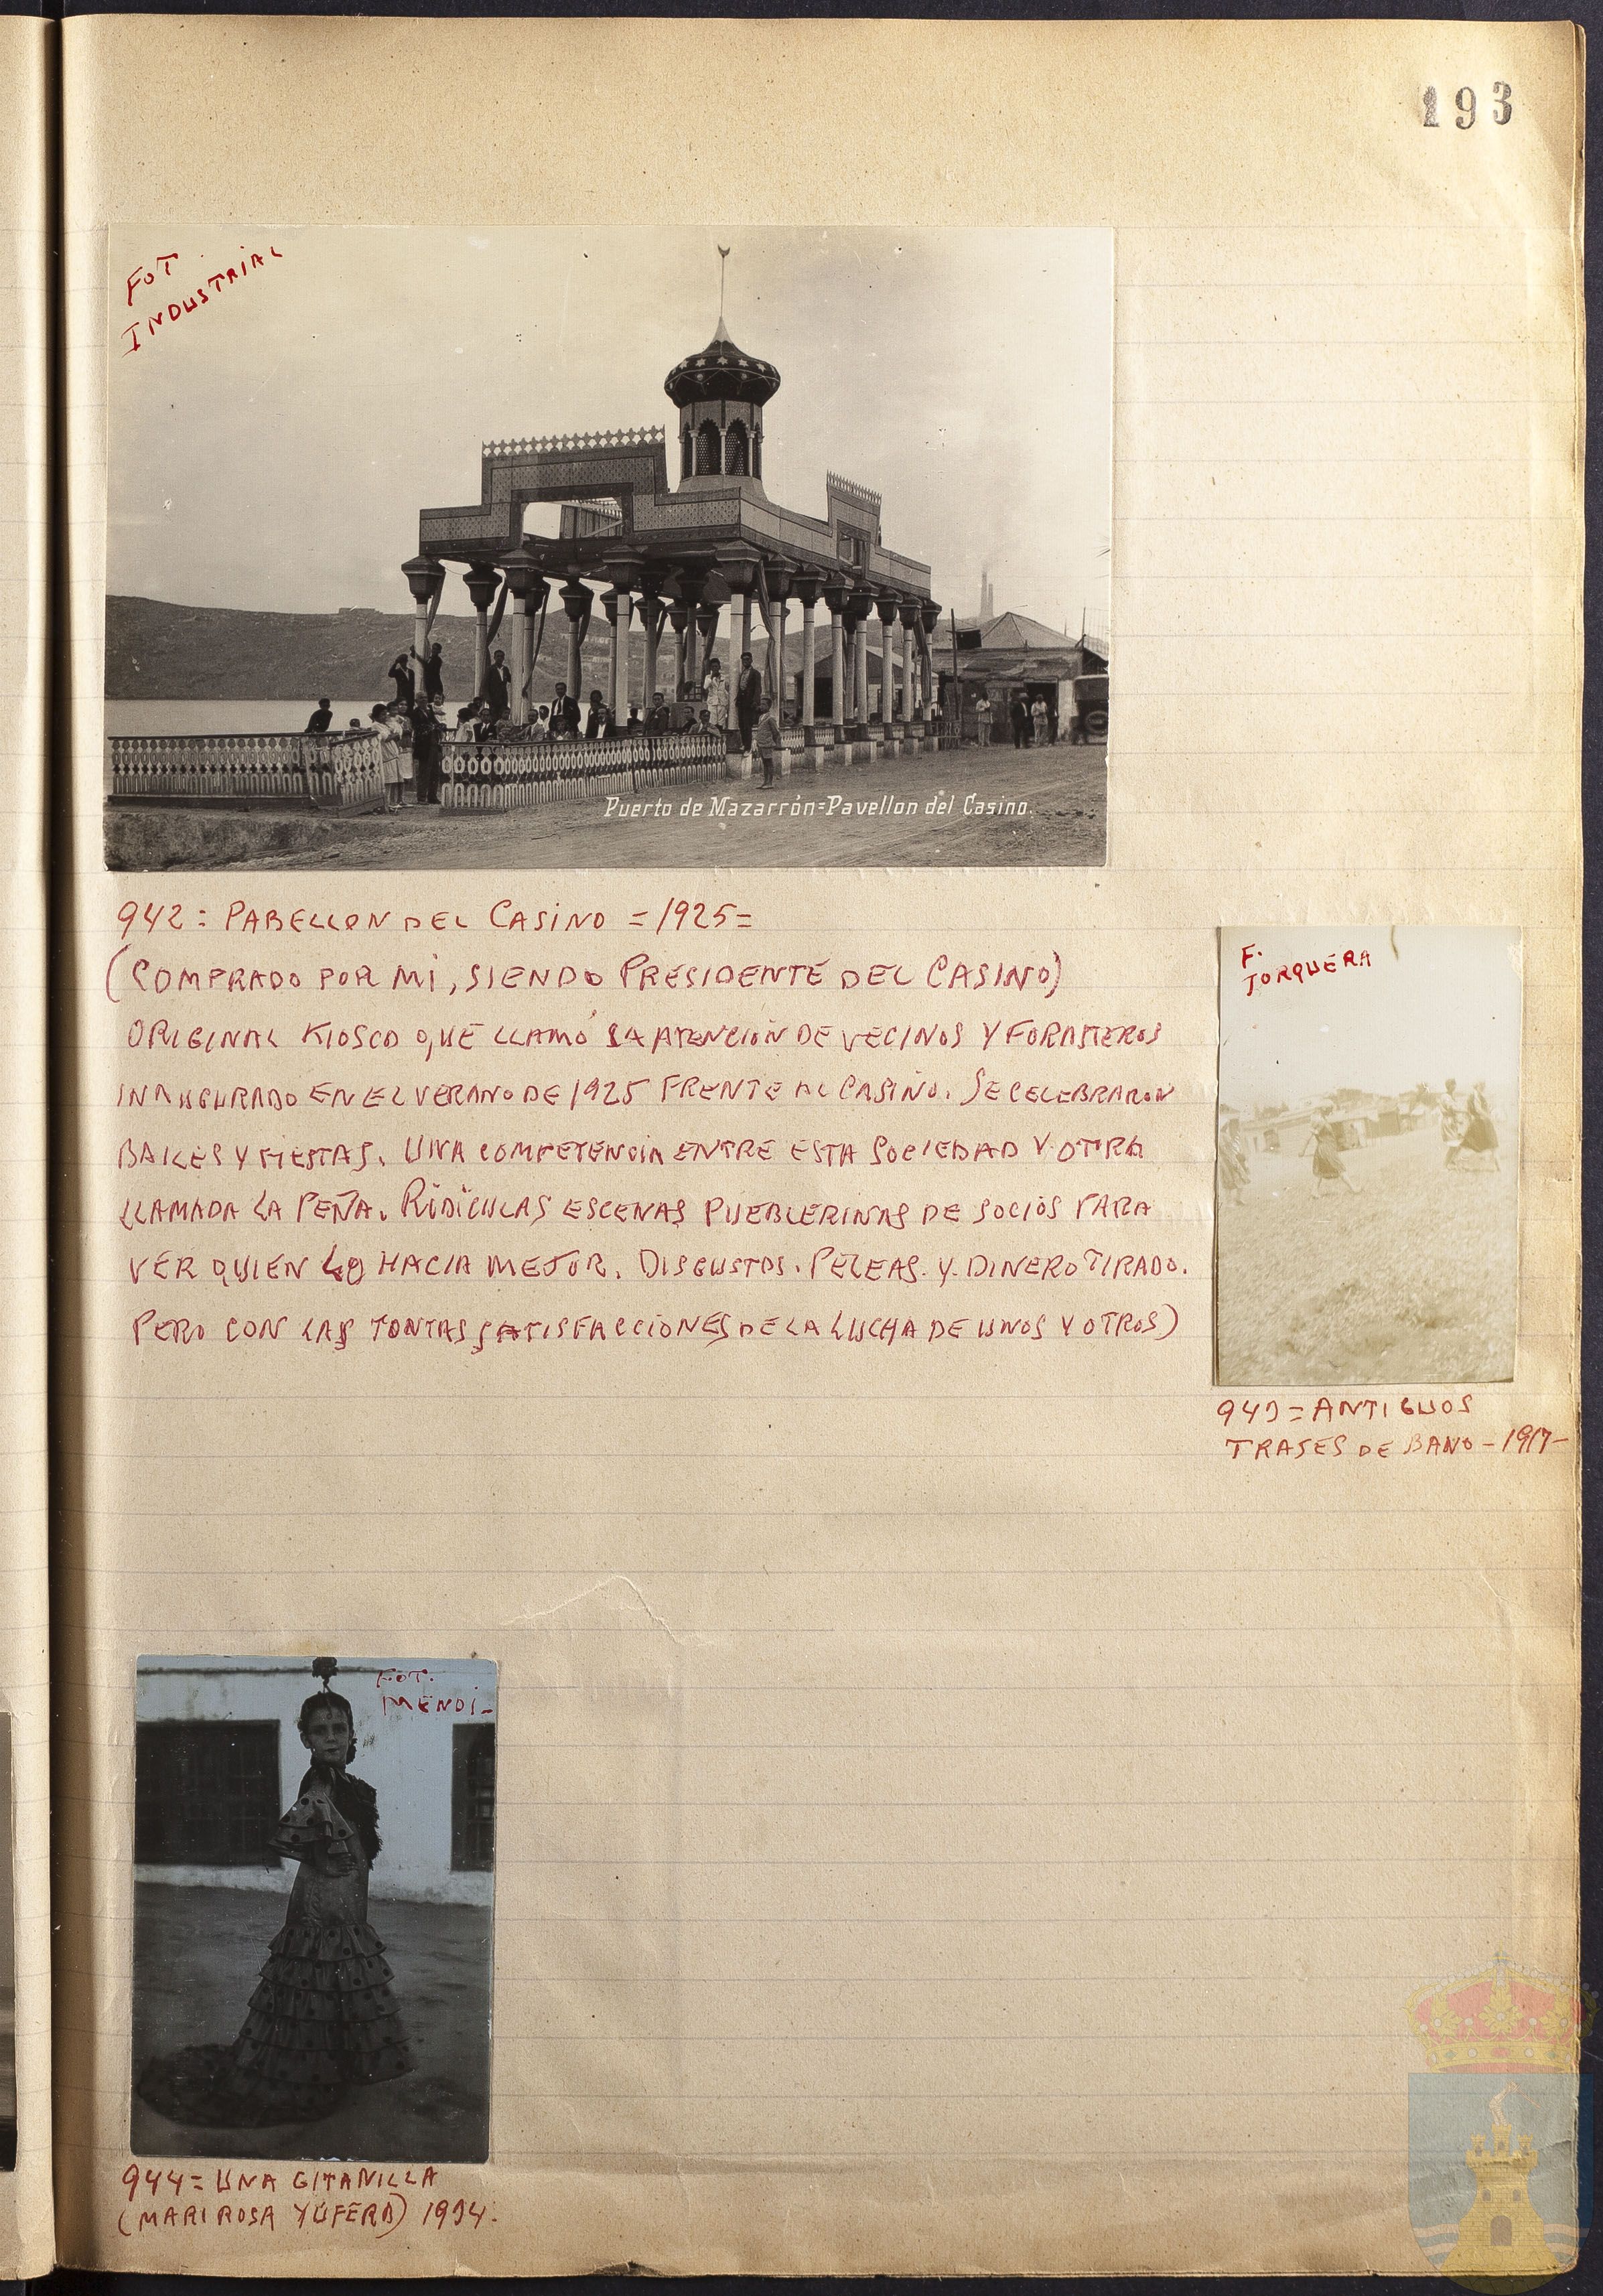 193
FOT
INDUSTRIAL
Puerto de Mazarrón=Pavellon del Casino.
942= PABELLON DEL CASINO =1925=
(COMPRADO POR MI, SIENDO PRESIDENTE DEL CASINO)
ORIGINAL KIOSCO QUE LLAMÓ LA ATENCIÓN DE VECINOS Y FORASTEROS
INAUGURADO EN EL VERANO DE 1925 FRENTE AL CASINO. SE CELEBRARON
BAILES Y FIESTAS. UNA COMPETENCIA ENTRE ESTA SOCIEDAD Y OTRA
LLAMADA LA PEÑA. RIDICULAS ESCENAS PUEBLERINAS DE SOCIOS PARA
VER QUIEN LO HACIA MEJOR. DISGUSTOS. PELEAS. Y. DINERO TIRADO.
PERO CON LAS TONTAS SATISFACCIONES DE LA LUCHA DE UNOS Y OTROS)
F.
JORQUERA
943= ANTIGUOS
TRAJES DE BAÑO - 1917-
FOT.
MENDI-
944= UNA GITANILLA
(MARI ROSA YÚFERA) 1934.